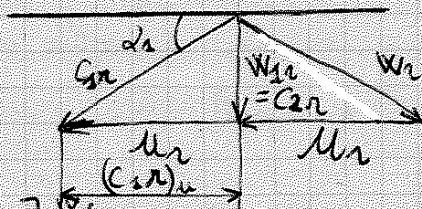 α₁
C₁r
W₁r
=C₂r
Wr
Ur
Ur
(C₁r)u